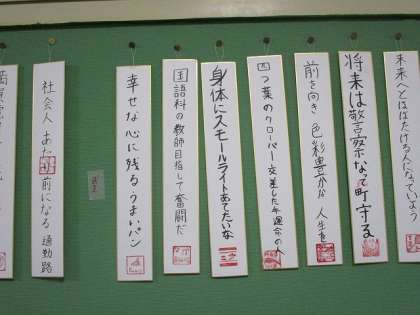 未来へとはばたける人になっていよう
将来は警察なって町守る
前を向き 色彩豊かな 人生を
四つ葉のクローバー交差した手運命の人
身体にスモールライトあてたいな
国語科の教師目指して奮闘だ
幸せな心に残るうまいパン
社会人 あたり前になる 通勤路